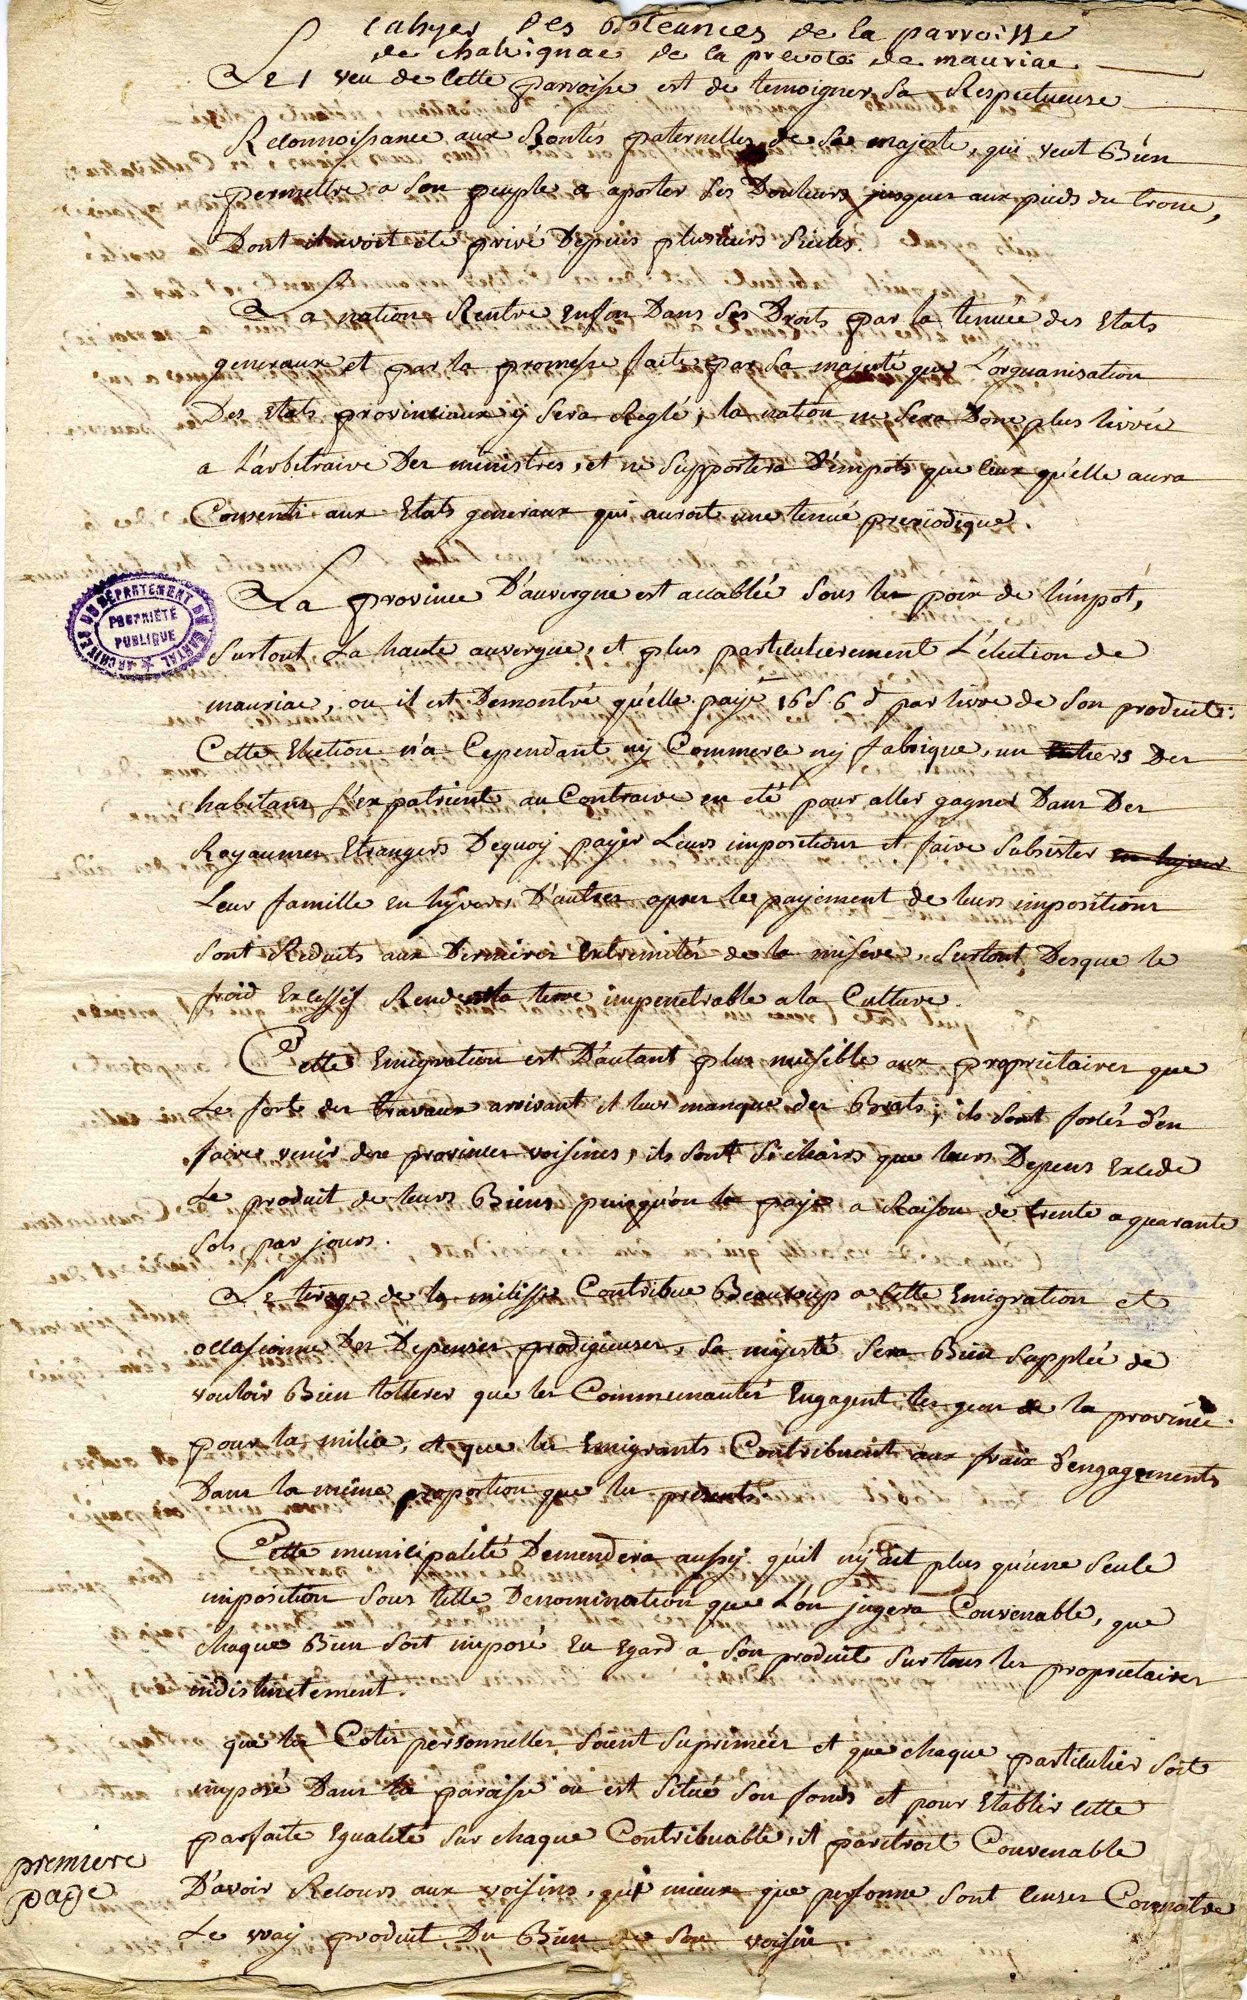 cahyer des doleances de la parroisse
de chalvignac de la prevoté de mauriac.
Le 1 veu de Cette parroisse est de temoigner Sa Respectueuse
Reconnoissance aux Bontés paternelles de Sa majesté, qui veut Bien
permettre a Son peuple a aporter Ses Douleurs jusques aux pieds du trone,
Dont il avoit été privé Depuis plusieurs Siecles.
La nation Rentre enfin Dans Ses Droits par la tenuée des Etats
generaux et par la promesse faite par Sa majesté que L'organisation
Des Etats provinciaux y Sera Reglé, la nation ne Sera Donc plus livrée
a L'arbitraire Des ministres, et ne Supportera D'impots que Ceux qu'elle aura
Consenti aux Etats generaux qui auroit une tenué periodique.
La province D'auvergne est accablée Sous le poix de l'impôt,
Surtout La haute auvergne, et plus particulierement L'élection de
mauriac, ou il est Demontré qu'elle paye 16 S. 6 d par livre de Son produit:
Cette Election n'a Cependant ny Commerce ny fabrique, un tiers Des
habitans S'expatrient au Contraire en eté pour aller gagner Dans Des
Royaumes Etrangers Dequoy payer Leurs impositions et faire Subsister en hyver
Leur famille en hyver, D'autres apres le payement de leurs impositions
Sont Reduits aux Dernieres Extremités de la misere, Surtout Desque le
froid Excessif Rend la terre impenetrable a la Culture.
Cette Emigration est D'autant plus nuisible aux proprietaires que
Le fort des travaux arrivant il leur manque des Brats; ils Sont forcés d'en
faire venir des provinces voisines, ils Sont Si chairs que leurs Depens Excede
Le produit de leurs Biens, puisqu'on le paye a Raison de trente a quarante
Sols par jours.
Le tirage de la milisse Contribue Beaucoup a Cette Emigration et
occasionne Des Depenses prodigieuses, Sa majesté Sera Bien Suppliée de
vouloir Bien tollerer que les Communautés Engagent les gens de la province
pour la milice, et que les Emigrants Contribuent aux fraix d'engagements
Dans la même proportion que les presents.
Cette municipalité Demendera aussy qu'il n'y ait plus qu'une Seule
imposition Sous telle Denomination que L'on jugera Convenable, que
chaque Bien Soit imposé En Egard a Son produit Sur tous les proprietaires
indistinctement.
que les Cotes personnelles Soient Suprimées et que chaque particulier Soit
imposé Dans la paroisse ou est Situé Son fonds et pour Etablir cette
parfaite Egalité Sur chaque Contribuable, il paroitroit Convenable
D'avoir Recours aux voisins, qui mieux que personne Sont Censes Connoitre
Le vray produit Du Bien de Son voisin
premiere
page
ARCHIVES DU DÉPARTEMENT DU CANTAL
PROPRIÉTÉ
PUBLIQUE